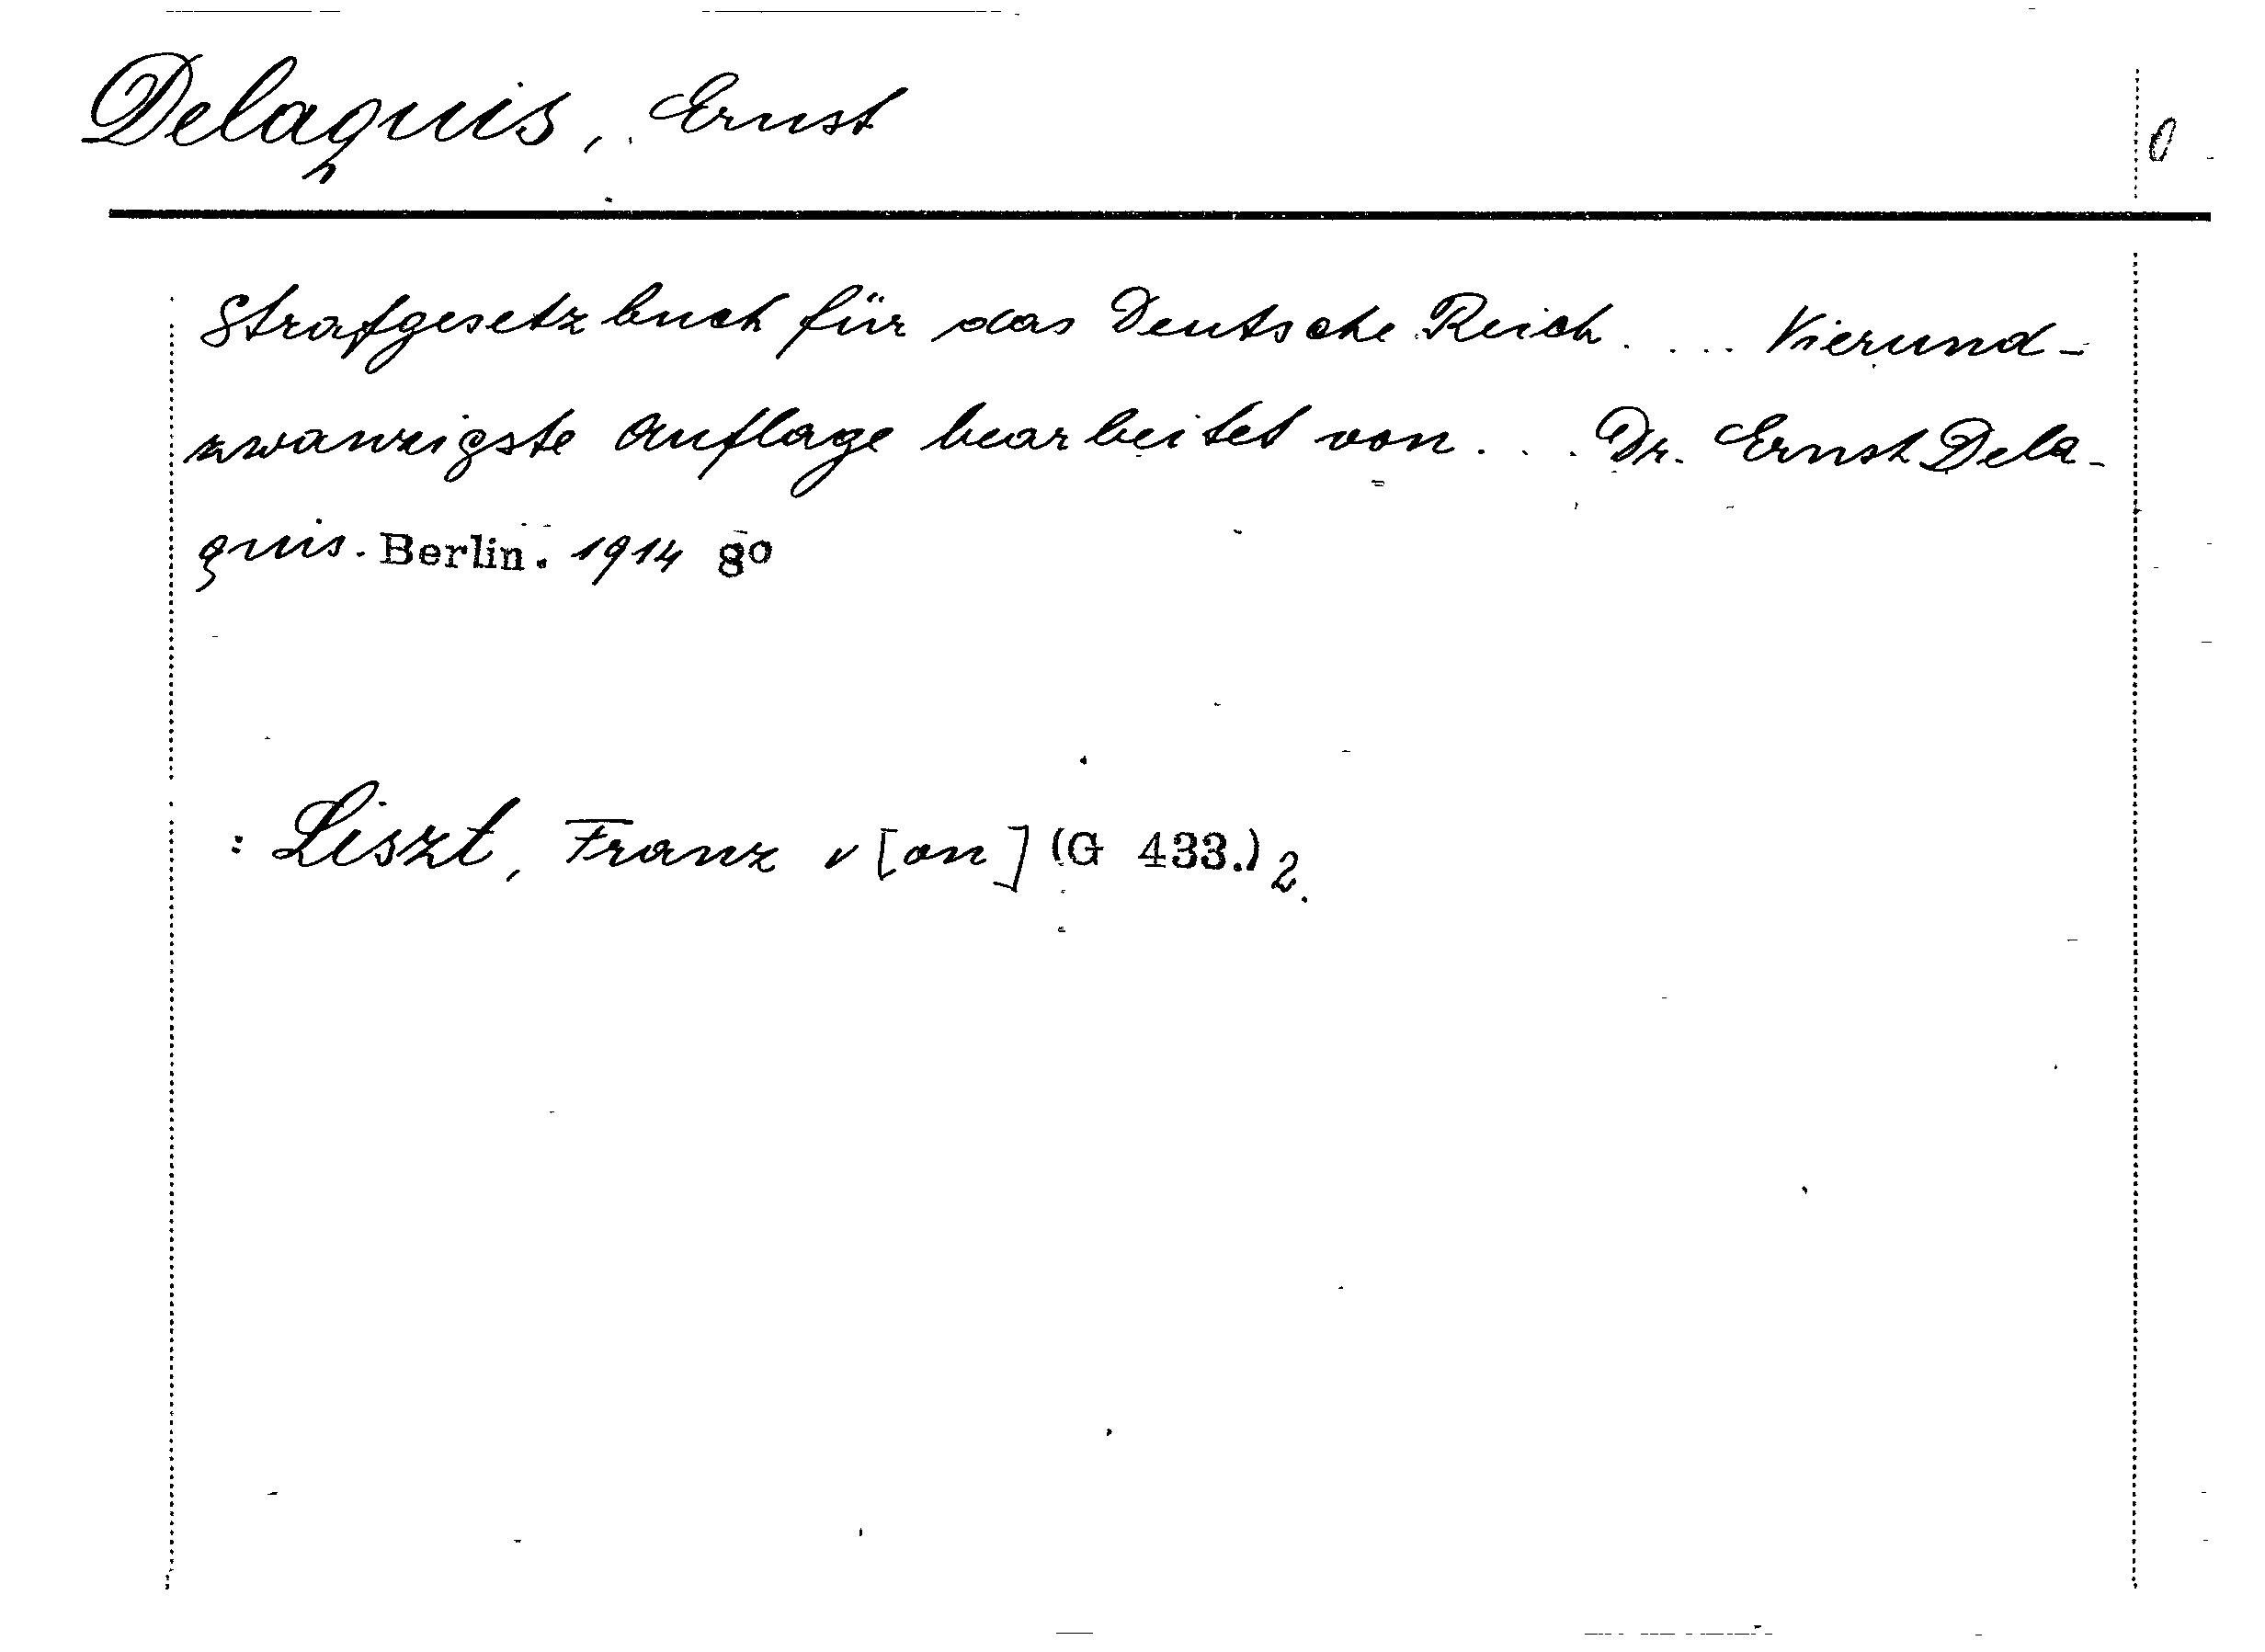 Delaquis, Ernst
0
Strafgesetzbuch für das Deutsche Reich.... Vierund-
zwanzigste Auflage bearbeitet von... Dr. Ernst Dela-
quis. Berlin. 1914 8º
: Liszt, Franz v[on] (G 433.) 2.